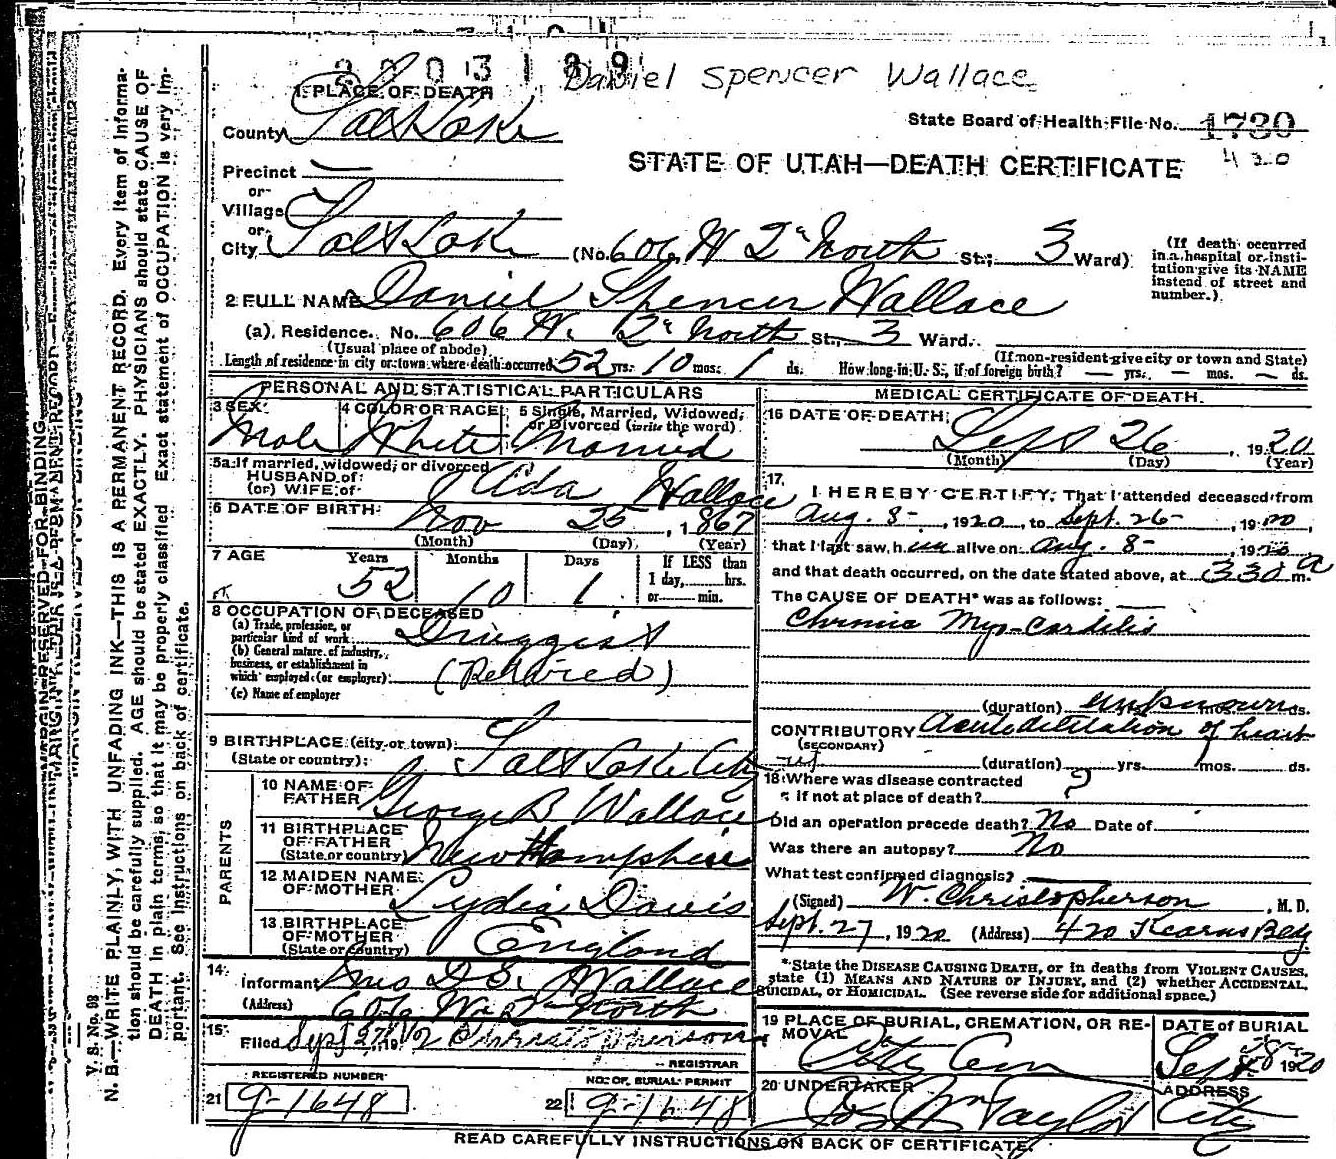 Daniel Spencer Wallace
1 PLACE OF DEATH
County Salt Lake
State Board of Health File No. 1730
420
STATE OF UTAH—DEATH CERTIFICATE
Precinct —
or
Village
or
City Salt Lake (No. 606 W 2" North St.; 3 Ward)
(If death occurred in a hospital or institution give its NAME instead of street and number.)
2 FULL NAME Daniel Spencer Wallace
(a). Residence. No. 606 W. 2" North St., 3 Ward.
(Usual place of abode) (If non-resident give city or town and State)
Length of residence in city or town where death occurred 52 yrs. 10 mos. 1 ds. How long in U. S., if of foreign birth? — yrs. — mos. — ds.
PERSONAL AND STATISTICAL PARTICULARS
3 SEX 4 COLOR OR RACE 5 Single, Married, Widowed, or Divorced (write the word)
Male White Married
5a If married, widowed, or divorced
HUSBAND of
(or) WIFE of Ada Wallace
6 DATE OF BIRTH Nov 25, 1867
(Month) (Day) (Year)
7 AGE Years Months Days If LESS than
1 day, hrs.
or min.
52 10 1
8 OCCUPATION OF DECEASED
(a) Trade, profession, or
particular kind of work Druggist
(b) General nature of industry,
business, or establishment in
which employed (or employer) (Retired)
(c) Name of employer
9 BIRTHPLACE (city or town)
(State or country) Salt Lake City
PARENTS
10 NAME OF
FATHER George B Wallace
11 BIRTHPLACE
OF FATHER
(State or country) New Hampshire
12 MAIDEN NAME
OF MOTHER Lydia Davis
13 BIRTHPLACE
OF MOTHER
(State or country) England
14
Informant Mrs D. S. Wallace
(Address) 606 W. 2" North
15
Filed Sept 27, 19 Christopherson
REGISTRAR
REGISTERED NUMBER
21 9-1648
NO. OF BURIAL PERMIT
22 9-1648
MEDICAL CERTIFICATE OF DEATH
16 DATE OF DEATH
Sept 26, 1920
(Month) (Day) (Year)
17
I HEREBY CERTIFY, That I attended deceased from
Aug. 8-, 1920, to Sept. 26-, 1920,
that I last saw him alive on Aug. 8-, 1920
and that death occurred, on the date stated above, at 330 a m.
The CAUSE OF DEATH* was as follows:
Chronic Myo-Carditis
(duration) unknown ds.
CONTRIBUTORY Acute dilitation of heart
(SECONDARY)
(duration) yrs. mos. ds.
18 Where was disease contracted
if not at place of death? ?
Did an operation precede death? No Date of
Was there an autopsy? No
What test confirmed diagnosis?
(Signed) W. Christopherson, M. D.
Sept. 27, 1920 (Address) 420 Kearns Bldg
*State the DISEASE CAUSING DEATH, or in deaths from VIOLENT CAUSES,
state (1) MEANS AND NATURE OF INJURY, and (2) whether ACCIDENTAL,
SUICIDAL, or HOMICIDAL. (See reverse side for additional space.)
19 PLACE OF BURIAL, CREMATION, OR RE-
MOVAL
City Cem
DATE of BURIAL
Sept 28 1920
20 UNDERTAKER
Jos Wm Taylor
ADDRESS
City
READ CAREFULLY INSTRUCTIONS ON BACK OF CERTIFICATE.
MARGIN RESERVED FOR BINDING
V. S. No. 98
N. B.—WRITE PLAINLY, WITH UNFADING INK—THIS IS A PERMANENT RECORD. Every item of informa-
tion should be carefully supplied. AGE should be stated EXACTLY. PHYSICIANS should state CAUSE OF
DEATH in plain terms, so that it may be properly classified. Exact statement of OCCUPATION is very im-
portant. See instructions on back of certificate.